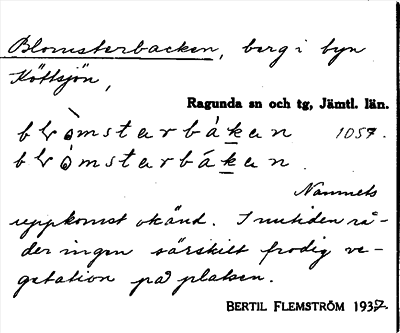 Blomsterbacken, berg i byn
Köttsjön,
Ragunda sn och tg, Jämtl. län.
blòmstarbákan 1057.
blómstarbákan
Namnets
uppkomst okänd. I nutiden rå-
der ingen särskilt frodig ve-
getation på platsen.
BERTIL FLEMSTRÖM 1937.